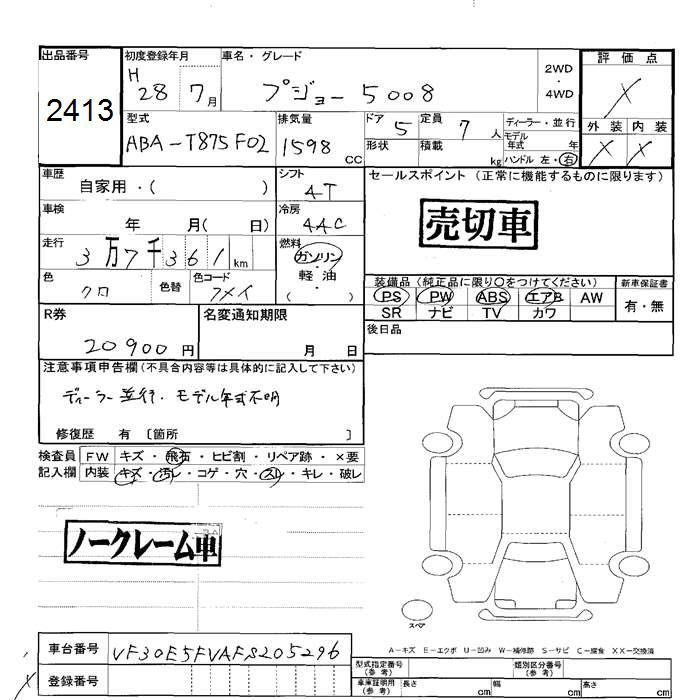 出品番号
2413
初度登録年月
H
28 7月
車名・グレード
プジョー 5008
2WD
・
4WD
評価点
X
外装 内装
X X
型式
ABA-T875F02
排気量
1598
CC
ドア 5
定員 7 人
形状
積載 kg
ディーラー・並行
モデル
年式 年
ハンドル 左・右
車歴
自家用・( )
シフト
4T
車検
年 月( 日)
冷房
AAC
走行
3万7千361km
燃料
ガソリン
・
軽油
( )
色
クロ
色替
色コード
フメイ
R券
20900円
名変通知期限
月 日
セールスポイント (正常に機能するものに限ります)
売切車
装備品 (純正品に限り○をつけてください)
新車保証書
PS PW ABS エアB AW
SR ナビ TV カワ
有・無
後日品
注意事項申告欄(不具合内容等は具体的に記入して下さい)
ディーラー並行・モデル年式不明
修復歴 有 〔箇所 〕
検査員
記入欄
FW キズ・飛石・ヒビ割・リペア跡・×要
内装 キズ・汚レ・コゲ・穴・スレ・キレ・破レ
ノークレーム車
スペア
A-キズ E-エクボ U-凹み W-補修跡 S-サビ C-腐食 XX-交換済
車台番号 VF30E5FVAFS205296
登録番号
型式指定番号
(参考)
類別区分番号
(参考)
車庫証明用
(参考)
長さ cm 幅 cm 高さ cm